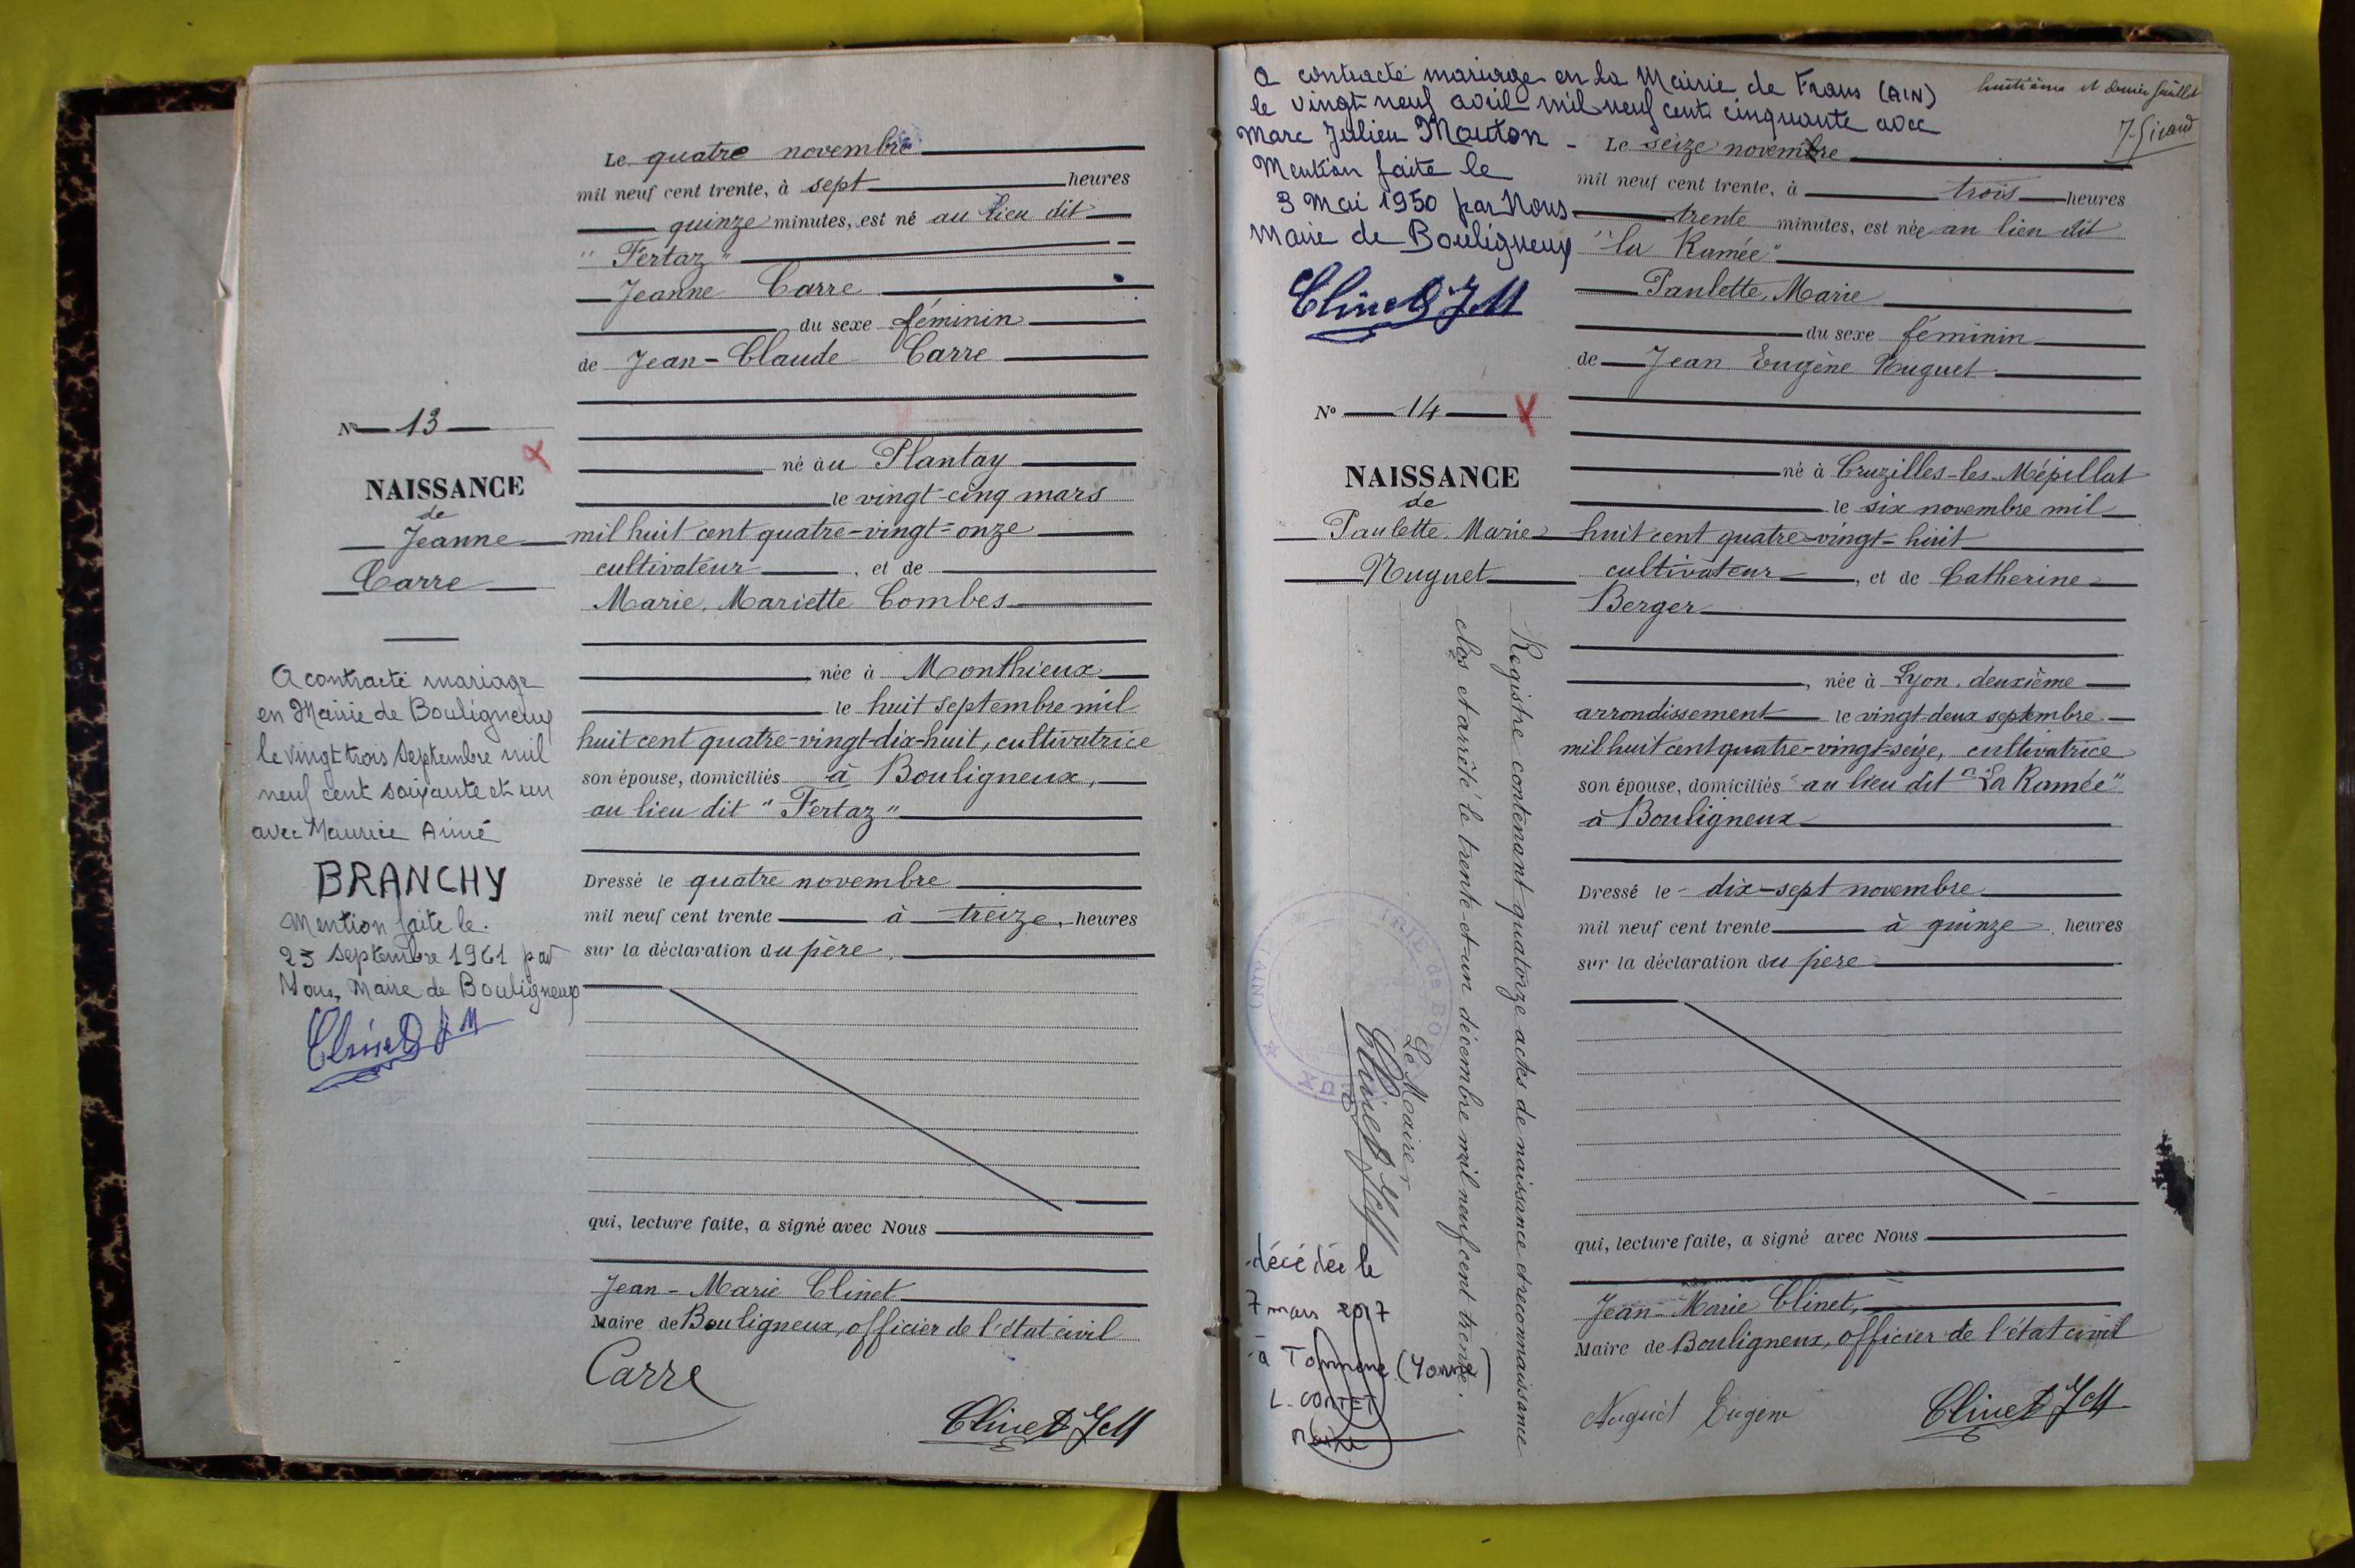 Le quatre novembre
mil neuf cent trente, à sept heures
quinze minutes, est né au lieu dit
"Fertaz"
Jeanne Carre
du sexe féminin
de Jean-Claude Carre
né au Plantay
le vingt-cinq mars
mil huit cent quatre-vingt-onze
cultivateur, et de
Marie, Mariette Combes
née à Monthieux
le huit septembre mil
huit cent quatre-vingt-dix-huit, cultivatrice
son épouse, domiciliés à Bouligneux,
au lieu dit "Fertaz"
Dressé le quatre novembre
mil neuf cent trente à treize, heures
sur la déclaration du père.
qui, lecture faite, a signé avec Nous
Jean-Marie Clinet
Maire de Bouligneux, officier de l'état civil
Carre
Clinet JM
No 13
NAISSANCE
de
Jeanne
Carre
A contracté mariage
en Mairie de Bouligneux
le vingt trois septembre mil
neuf cent soixante et un
avec Maurice Aimé
BRANCHY
Mention faite le
23 septembre 1961 par
Nous, Maire de Bouligneux
Clinet JM
A contracté mariage en la Mairie de Frans (AIN)
le vingt neuf avril mil neuf cent cinquante avec
Marc Julien Mouton -
Mention faite le
3 Mai 1950 par Nous
Maire de Bouligneux
Clinet JM
huitième et dernier feuillet
J. Girand
No 14
NAISSANCE
de
Paulette, Marie
Nuguet
Le seize novembre
mil neuf cent trente, à trois heures
trente minutes, est née au lieu dit
"la Ramée"
Paulette, Marie
du sexe féminin
de Jean Eugène Nuguet
né à Cruzilles-les-Mépillat
le six novembre mil
huit cent quatre-vingt-huit
cultivateur, et de Catherine
Berger
, née à Lyon, deuxième
arrondissement le vingt-deux septembre
mil huit cent quatre-vingt-seize, cultivatrice
son épouse, domiciliés au lieu dit "La Ramée"
à Bouligneux
Dressé le dix-sept novembre
mil neuf cent trente à quinze, heures
sur la déclaration du père
qui, lecture faite, a signé avec Nous
Jean-Marie Clinet,
Maire de Bouligneux, officier de l'état civil
Nuguet Eugène
Clinet JM
Registre contenant quatorze actes de naissance et reconnaissance
clos et arrêté le trente-et-un décembre mil neuf cent trente.
Le Maire
Clinet JM
décédée le
7 mars 2017
à (Yonne)
Maire